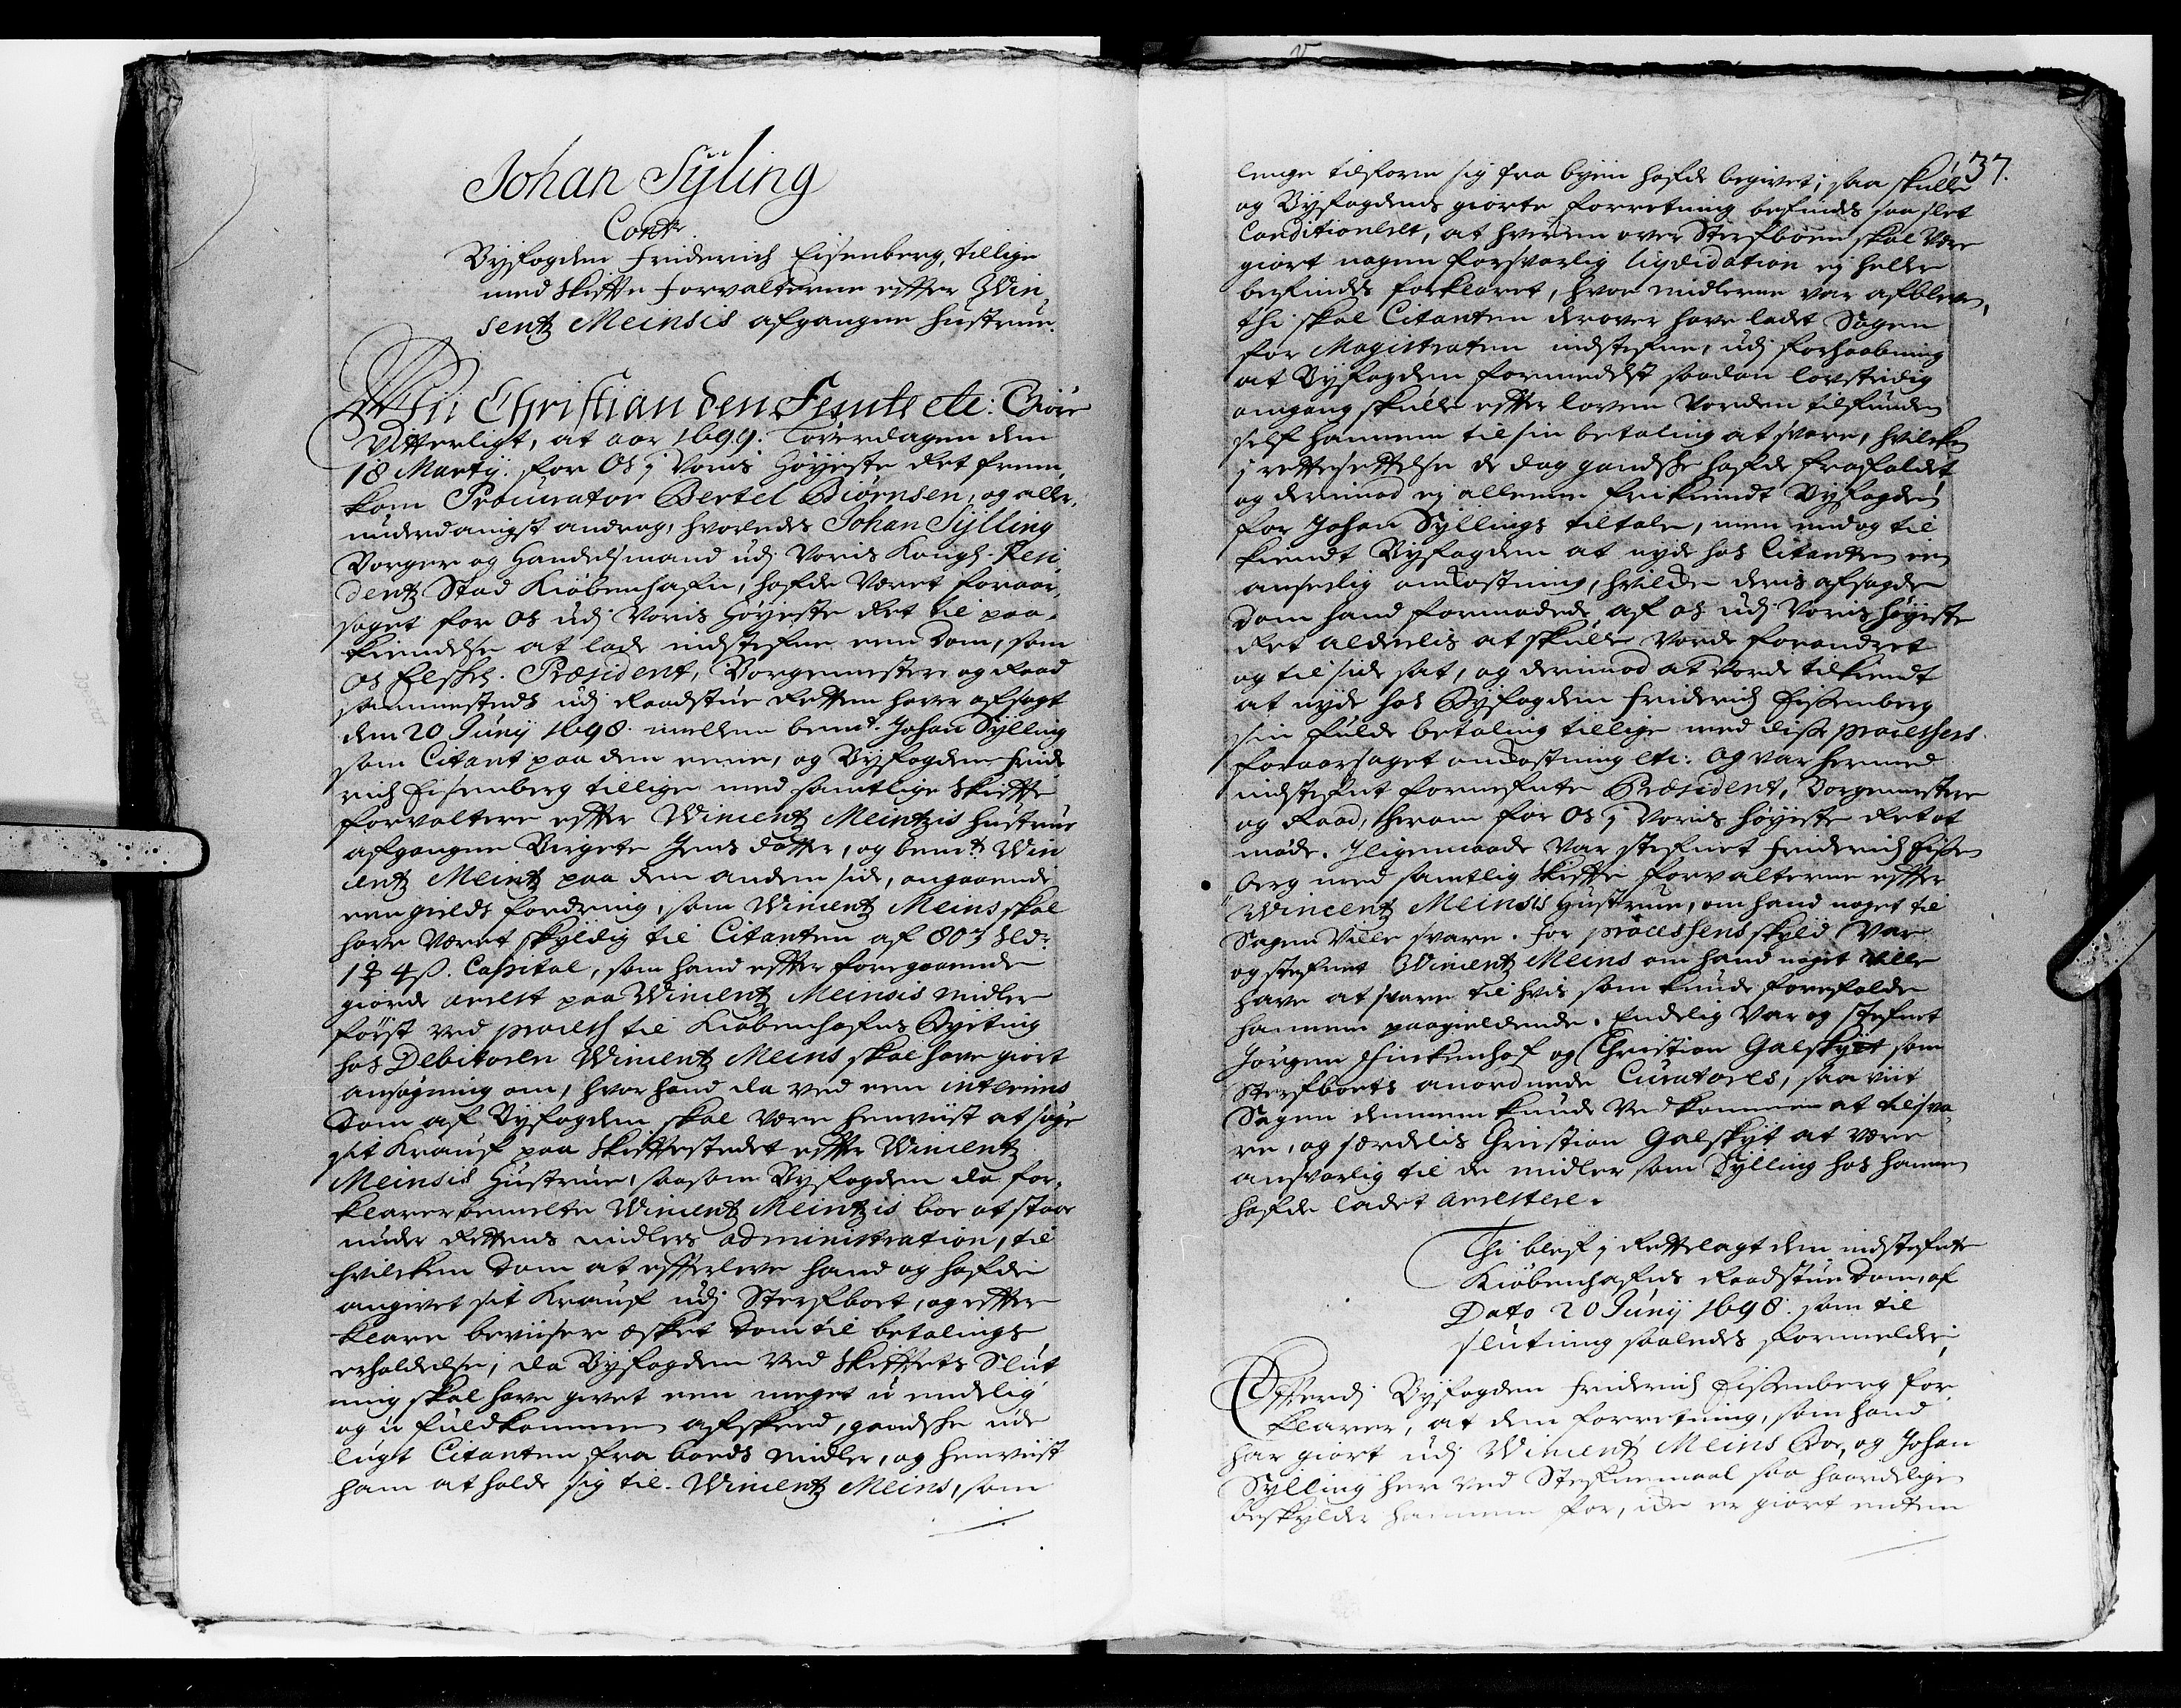 Johan Sÿling
Contr
Byfogden Friderich Eisenberg, tillige
med Skiffte forvalterne effter Win
sentz Meinses afgangne hustrue.
Wii Christian den Femte etc: Giøre
Vitterligt, at aar 1699. Løverdagen den
18 Martÿ. for Os j Voris Høyeste Ret frem,
kom Procurator Bertel Biørnsen, og aller,
underdanigst andrag, hvorledes Johan Sÿlling
Borger og Handelsmand udj Voris Kongl. Resi
dentz Stad Kiøbenhafn, hafde Været foraar,
saget for Os udj Voris Høyeste Ret til paa,
kiendelse at lade indstefne een Dom, som
Os Elskel. Præsident, Borgemestere og Raad
sammesteds udj Raadstue Retten haver afsagt
den 20 Junÿ 1698. mellem bemt. Johan Sÿlling
som Citant paa den eene, og Byfogden Fride
rich Eisenberg tillige med samtlige Skiffte
forvaltere effter Wincentz Meintzis hustrue
afgangne Birgete Jens Datter, og bemt. Win
centz Meintz paa den anden side, angaaende
een gields fordring, som Wincentz Meins skal
have Været skyldig til Citanten af 807 Sldr.
1 ꝶ 4 ß. Capital, som hand effter foregaaende
giorde arrest paa Wincentz Meinsis midler
først ved process til Kiøbenhafns Byeting
hos Debitoren Wincentz Meins skal have giort
ansøgning om, hvor hand da ved een interims
Dom af Byfogden skal være henviist at søge
sit Krauf paa Skifftestedet effter Wincentz
Meinsis Hustrue, saasom Byfogden da for,
klarer bemelte Wincentz Meintzis boe at staae
under Rettens midlers administration, til
hvilcken Dom at effterleve hand og hafde
angivet sit Krauf udj Sterfboet, og effter
klare beviiser æsket Dom til betalings
erholdelse; da Byfogden Ved Skifftets Slut
ning skal have givet een meget u-endelig
og u-fuldkommen afskeed, gandske ude
lugt Citanten fra boeds midler, og henviist
ham at holde sig til Wincentz Meins, som
37.
lenge tilforn sig fra byen hafde begivet; saa skulle
og Byfogdens giorte forretning befindes saa slet
Conditioneret, at hverken over Sterfboen skal være
giort nogen forsvarlig liqvidation ej heller
befindes forklaret, hvor midlerne var afbleven,
thi skal Citanten derover have ladet Sagen
for Magistraten indstefne, udj forhaabning
at Byfogden formedelst saadan lovstridig
omgang skulle effter loven Vorden tilfunden
self hannem til sin betaling at svare, hvilcken
j rettesettelse de dog gandske hafde frafaldet
og derimod ej alleene frikiendt Byfogden
for Johan Sÿllings tiltale, men endog til
kiendt Byfogden at nyde hos Citanten een
anseelig omkostning, hvilcken deris afsagde
Dom hand formodede af os udj Voris høyeste
Ret aldeelis at skulle Vorde forandret
og til side sat, og derimod at Vorde tilkiendt
at nyde hos Byfogden Friderich Eissenberg
sin fulde betaling tillige med disse processers
foraarsaget omkostning etc: Og var hermed
indstefnt fornefnte Præsident, Borgemestere
og Raad, herom for Os j Voris høyeste Ret at
møde. Jligemaade Var stefnet Friderich Eissen
berg med samtlig Skiffte forvalterne effter
Wincentz Meinsis Hustrue, om hand noget til
Sagen Ville svare. For processens skyld Var
og stefnet Wincentz Meins om hand noget Ville
have at svare til hvis som kunde forefalde
hannem paagieldende. Endelig Var og stefnet
Jørgen Finkenhof og Christian Galskÿt som
Sterfboets anordnede Curatores, saavit
Sagen dennem kunde Vedkomme at tilsva
re, og særdelis Christian Galskÿt at være
ansvarlig til de midler som Sÿlling hos hannem
hafde ladet arrestere.
Thi blef j Rettelagt den indstefnte
Kiøbenhafns Raadstue Dom, af
Dato 20 Junÿ 1698. som til
slutning saaledes formelder;
Efftterdj Byfogden Friderich Eissenberg for
klarer, at den forretning, som hand
har giort udj Wincentz Meins Boe, og Johan
Sÿlling her ved Stefnemaal saa haardelige
beskylder hannem for, icke er giort enten